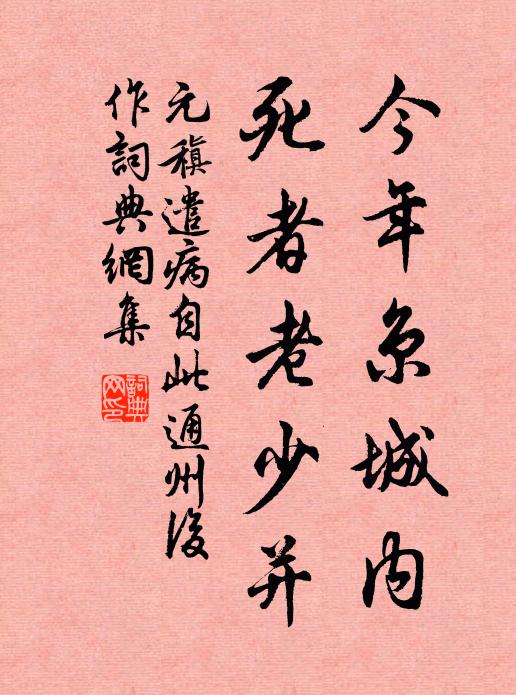 今年京城内
死者老少并
元稹遣病自此通州後
作詞典網集
詞典網印